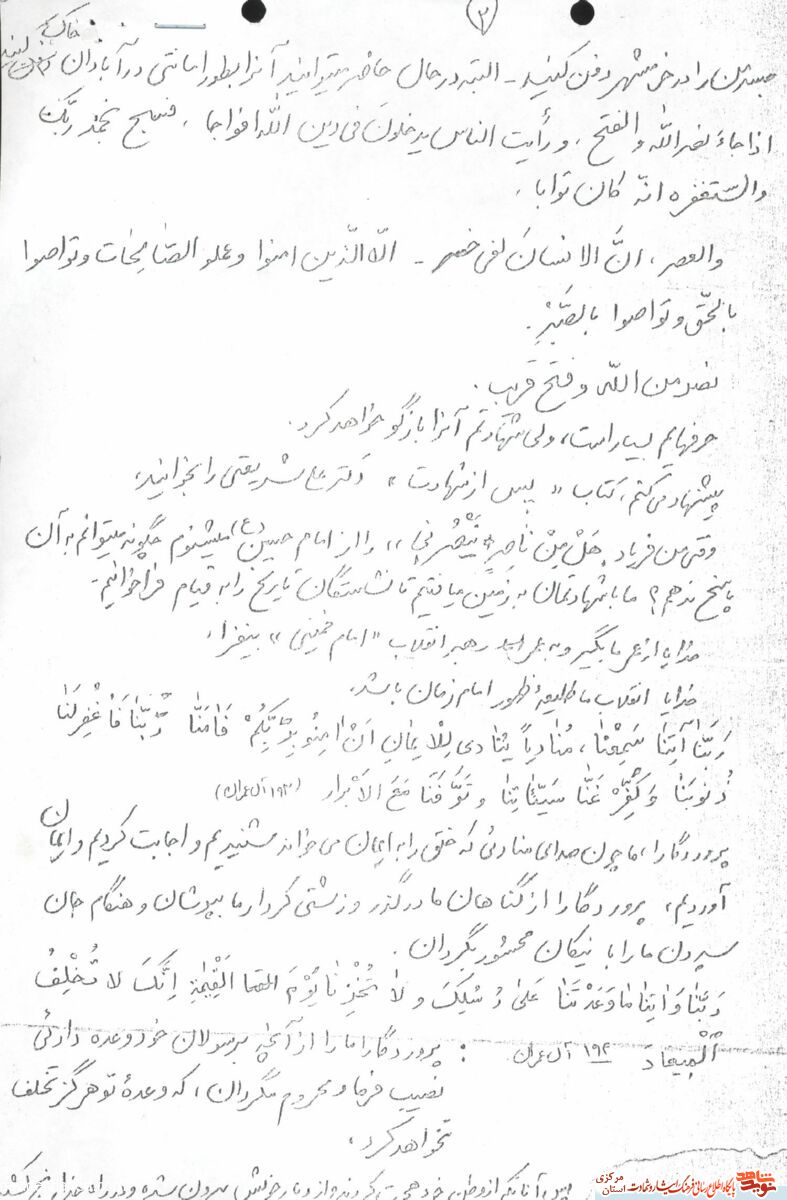 ۲
خاک
جسد من را در خرمشهر دفن کنید - البته در حال حاضر میتوانید آنرا بطور امانتی در آبادان
اذا جاء نصر الله والفتح ، و رأیت الناس یدخلون فی دین الله افواجا ، فسبح بحمد ربک
والستغفره انّه کان توابا ،
والعصر ، انَّ الانسان لفی خسر - الّا الّذین امنوا وعملو الصّالِحات وتواصوا
بالحّق و تواصوا بالصَّبْرِ .
نصر من الله و فتح قریب .
حرفهایم بسیار است، ولی شهادتم آنرا بازگو خواهد کرد .
پیشنهاد می‌کنم ، کتاب « پس از شهادت » دکتر علی شریعتی را بخوانید ،
وقتی من فریاد « هَلْ مِنْ ناصِرٍ یَنْصُرُنی » را از امام حسین (ع) میشنوم چگونه میتوانم به آن
پاسخ ندهم ؟ ما با شهادتمان به زمین میافتیم تا نشستگان تاریخ را به قیام فراخوانیم -
خدایا از عمر ما بگیر و به عمر رهبر انقلاب « امام خمینی » بیفزا ،
خدایا انقلاب ما طلیعهٔ ظهور امام زمان باشد .
رَبَّنا اَنَّنا سَمِعْنا ، مُنادِیاً یُنادی لِلْایمانِ اَنْ امِنُو بِرَبِّکُمْ فَامَنّا رَّبَّنا فَاغْفِرلَنا
ذُنُوبَنا وَ کَفِّرْ عَنّا سَیِّئاتِنا وَ تَوَفَّنا مَعَ الاَبْرار (۱۹۳ آل عمران)
پروردگارا ، ما چون صدای منادئی که خلق را به ایمان می خواند شنیدیم و اجابت کردیم و ایمان
آوردیم ، پروردگارا از گناهان ما درگذر و زشتی کردار ما بپوشان و هنگام جان
سپردن ما را با نیکان محشور بگردان .
رَبَّنا وَ اتِنا ما وَعَدْتَنا عَلی رُسُلِکَ و لا تُخْزِنا یَوْمَ الْقِیمَةِ اِنَّکَ لا تُخْلِفُ
الْمیعادَ ۱۹۴ آل عمران : پروردگارا ما را از آنچه برسولان خود وعده دادئی
نصیب فرما و محروم مگردان ، که وعدهٔ تو هرگز تخلف
نخواهد کرد ،
پس آنانکه از وطن خود هجرت کردند و از دیار خویش بیرون شده و در راه خدا رنج کشد
پایگاه اطلاع رسانی فرهنگ ایثار و شهادت استان مرکزی